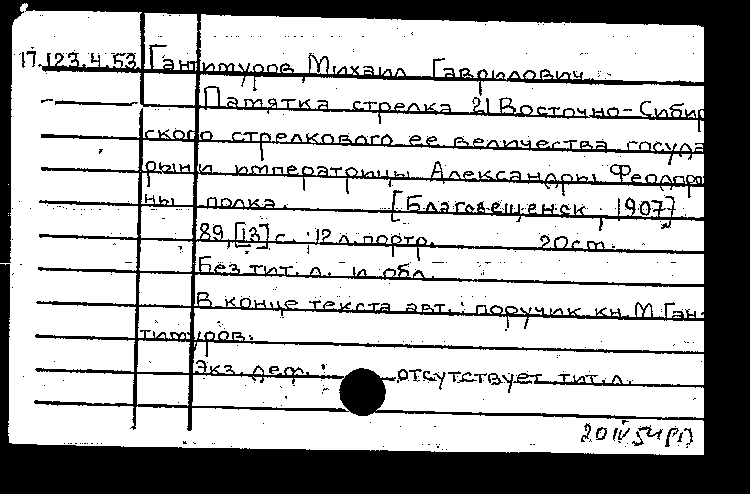 17.123.4.53 Гантимуров, Михаил Гаврилович.
Памятка стрелка 21 Восточно-Сибир
ского стрелкового ее величества госуда
рыни императрицы Александры Феодоро
ны полка. [Благовещенск, 1907]
89, [13] с.; 12 л. портр. 20 см.
Без тит. л. и обл.
В конце текста авт.: поручик кн. М. Ган-
тимуров.
Экз. деф.: отсутствует тит. л.
20 IV 54